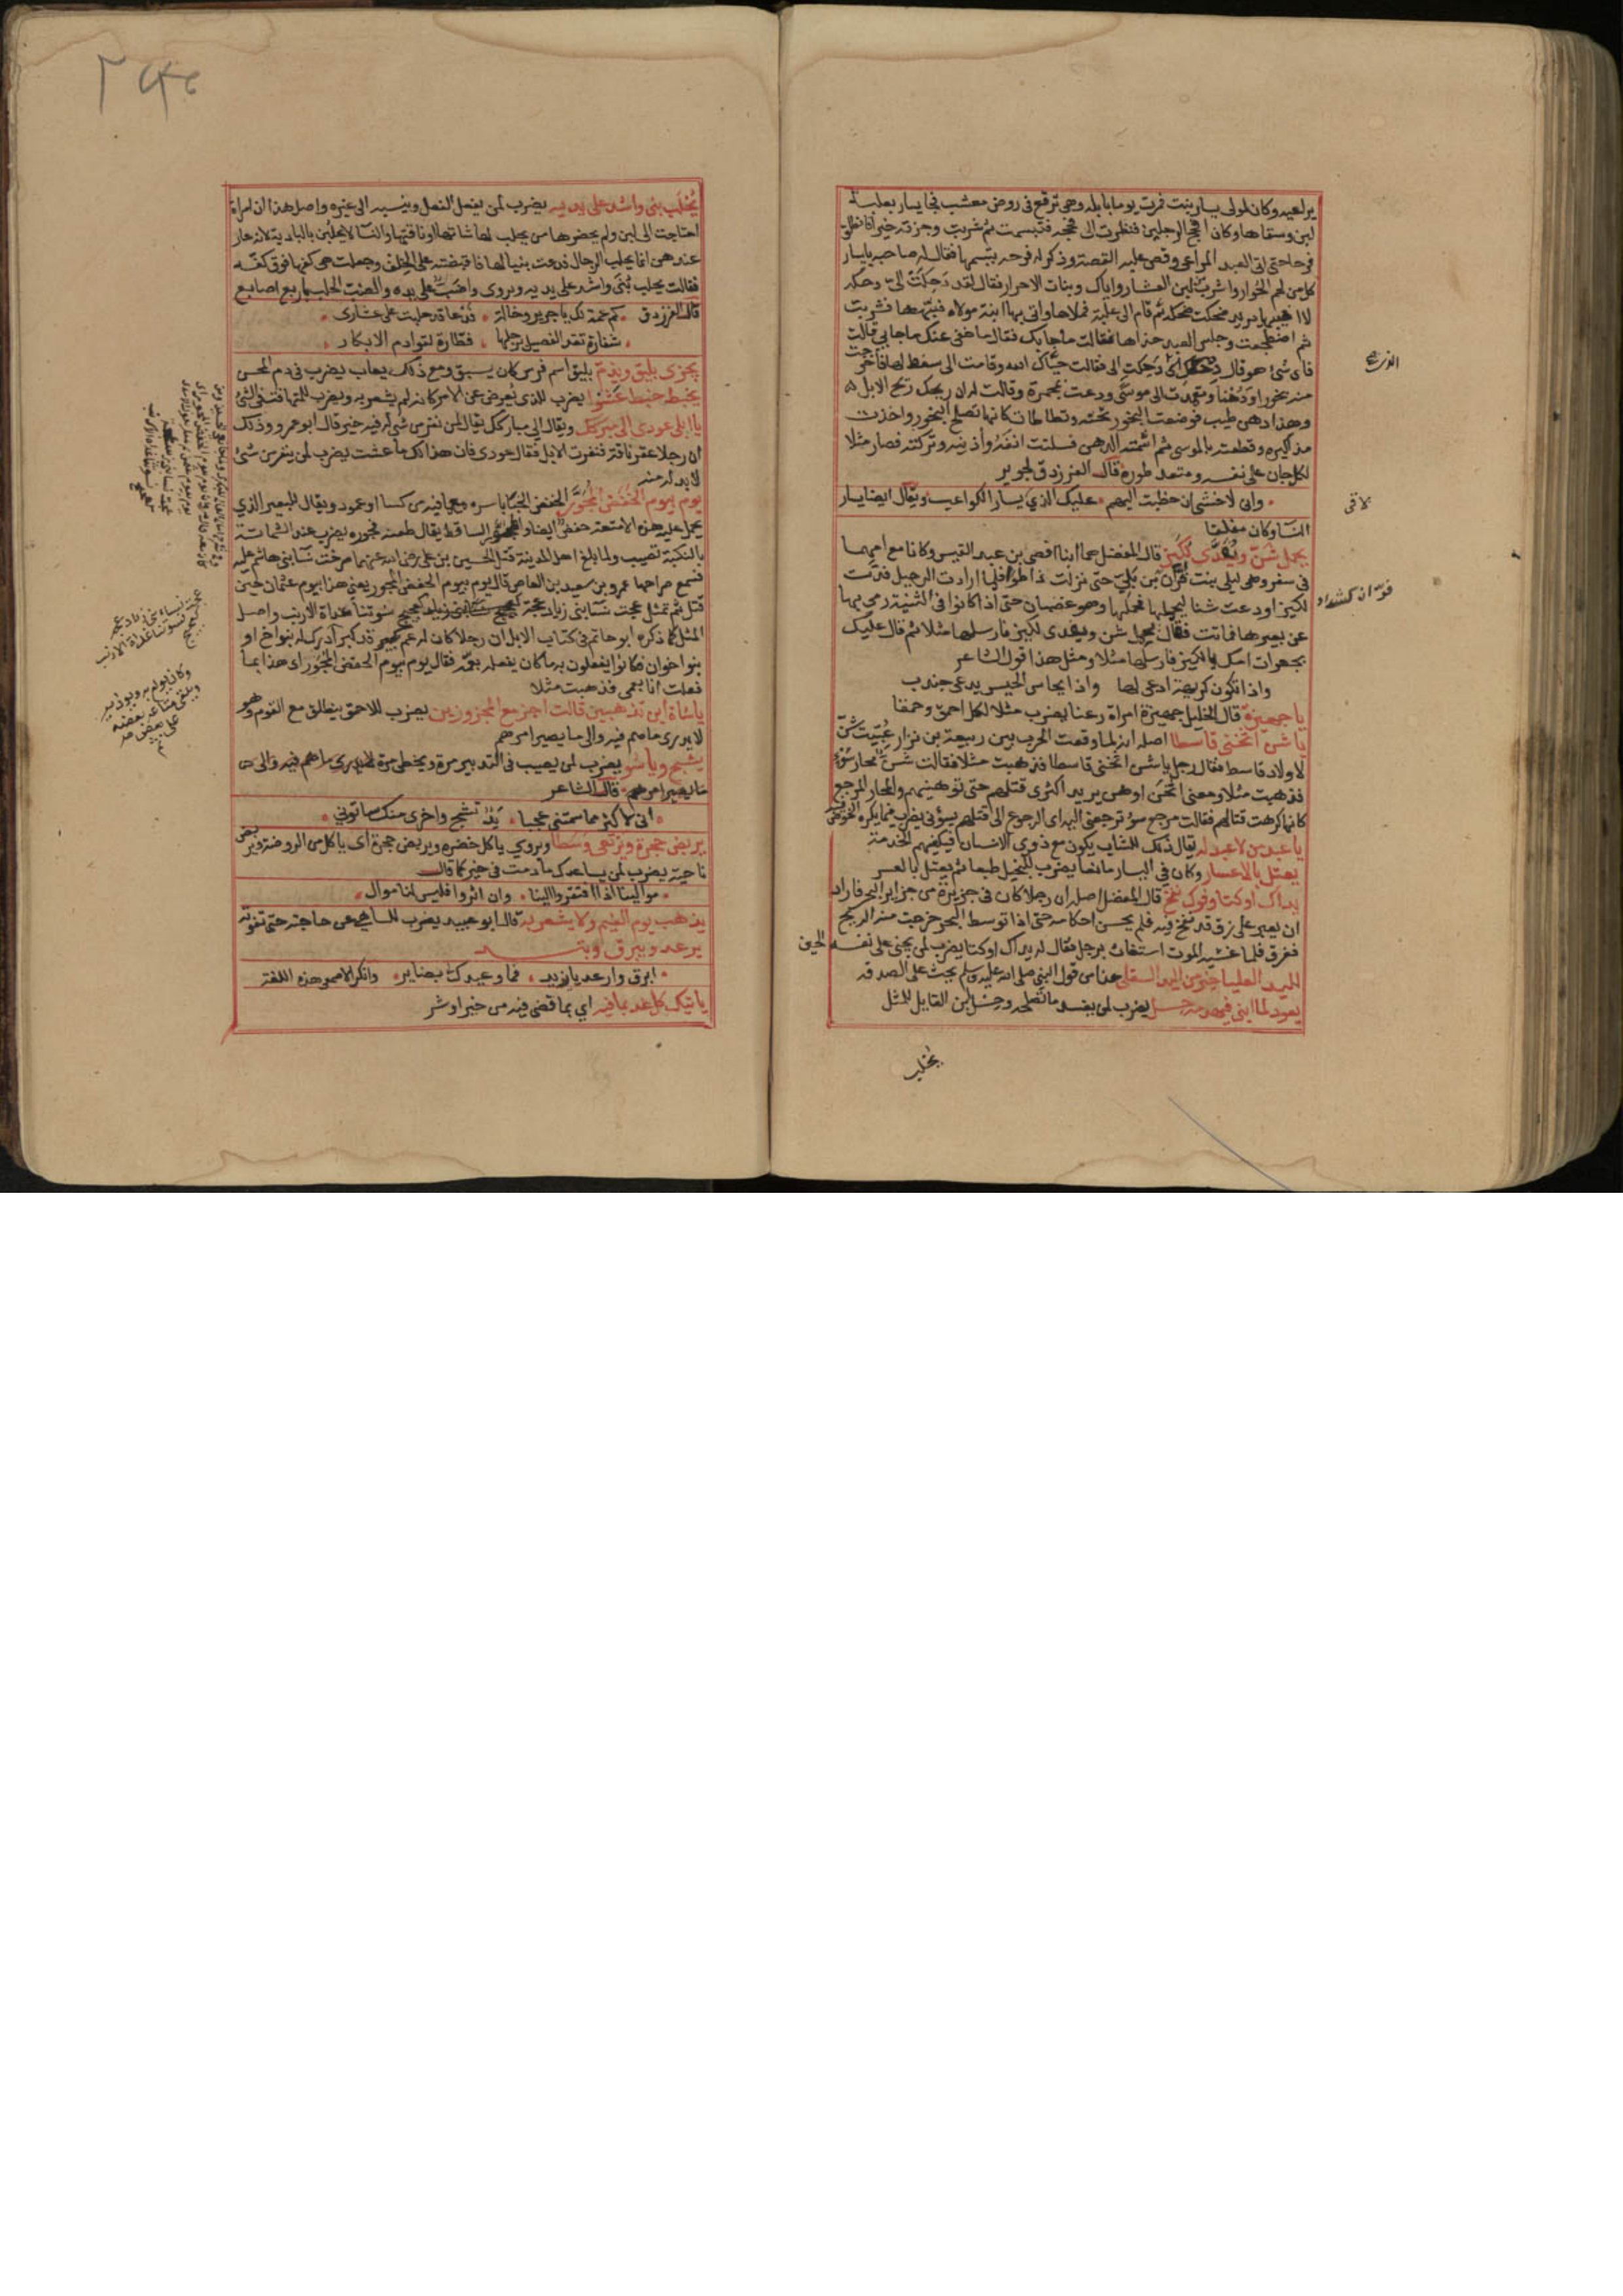 يرلعيه وكان لمولى يسار بنت فمرت يوما بابله وهي ترتع في روض معشب فجا يسار بعلبة
لبن وسقاها وكان افحج الرجلين فنظرت الى فحجه فتبسمت ثم شربت وجزته خيرا فانطلق
فرحا حتى اتى العبد المراعي وقص عليه القصة وذكر له فرحه بتبسمها فقال له صاحبه يا يسار
كل من لحم الحوار واشرب من لبن العشار واياك وبنات الاحرار فقال لقد دحكت الي دحكة
لا اخيبها يريد ضحكت ضحكة ثم قام الى علبة فملاها واتى بها ابنة مولاه فنبهها فشربت
ثم اضطجعت وجلس العبد حذاها فقالت ما جا بك فقال ما خفي عنك ما جا بي قالت
فاي شئ هو قال دحكك الذي دحكت الي فقالت حياك الله وقامت الى سفط لها فاخرجت
منه بخورا ودهنا وتعمدت الى موسى ودعت بمجمرة وقالت له ان ريحك ريح الابل
وهذا دهن طيب فوضعت البخور تحته وتطاطات كانها تصلح البخور واخذت
مذاكيره وقطعته بالموسى ثم اشمته الدهن فسلتت انفه واذنيه وتركته فصار مثلا
لكل جان على نفسه ومتعد طوره قال الفرزدق لجرير
واني لاخشى ان خطبت اليهم عليك الذي يسار الكواعب ويقال ايضا يسار
النسا وكان مفلقا
يحمل شن ويفدى لكيز قال المفضل هما ابنا افصى بن عبد القيس وكانا مع امهما
في سفر وهي ليلى بنت قران بن بلي حتى نزلت ذا طوى فلما ارادت الرحيل فدت
لكيزا ودعت شنا ليحملها فحملها وهو غضبان حتى اذا كانوا في الثنية رمى بها
عن بعيرها فماتت فقال يحمل شن ويفدى لكيز فارسلها مثلا ثم قال عليك
بجعرات امك يا لكيز فارسلها مثلا ومثل هذا قول الشاعر
واذا تكون كريهة ادعى لها واذا يحاس الحيس يدعى جندب
يا جهيزة قال الخليل جهيزة امراة رعنا يضرب مثلا لكل احمق وحمقا
يا شن اثخني قاسطا اصله انه لما وقعت الحرب بين ربيعة بن نزار عبيت شن
لاولاد قاسط فقال رجل يا شن اثخني قاسطا فذهبت مثلا فقالت شن محار سوء
فذهبت مثلا ومعنى اثخن اوهن يريد اكثري قتلهم حتى توهنيهم والمحار المرجع
كانها كرهت قتالهم فقالت مرجع سؤ ترجعني اليه اي الرجوع الى قتلهم يسؤني يضرب فيما يكره الخوض
يا عبد من لا عبد له يقال ذلك للشاب يكون مع ذوي الاسنان فيكفيهم الخدمة
يعتل بالاعسار وكان في اليسار مانعا يضرب للبخيل طبعا ثم يعتل بالعسر
يداك اوكتا وفوك نفخ قال المفضل اصله ان رجلا كان في جزيرة من جزاير البحر فاراد
ان يعبر على زق قد نفخ فيه فلم يحسن احكامه حتى اذا توسط البحر خرجت منه الريح
فغرق فلما غشيه الموت استغاث برجل فقال له يداك اوكتا يضرب لمن يجني على نفسه الحين
اليد العليا خير من اليد السفلى هذا من قول النبي صلى الله عليه وسلم يحث على الصدقة
يعود لما ابني فيهدمه حسل يضرب لمن يفسد ما تصلحه وحسل ابن القايل للمثل
يحلب
لاقى
يحلب بني واشد على يديه يضرب لمن يفعل الفعل وينسبه الى غيره واصل هذا ان امراة
احتاجت الى لبن ولم يحضرها من يحلب لها شاتها او ناقتها والنسا لا يحلبن بالبادية لانه عار
عندهن انما يحلب الرجال فدعت بنيا لها فاقبضته على الخلف وجعلت هي كفها فوق كفه
فقالت يحلب بني واشد على يديه ويروى واضب على يده والضب الحلب باربع اصابع
قال الفرزدق كم عمة لك يا جرير وخالة فدعا قد حلبت علي عشاري
شغارة تقذ الفصيل برجلها فطارة لقوادم الابكار
يجري بليق ويذم بليق اسم فرس كان يسبق ومع ذلك يعاب يضرب في ذم المحسن
يخبط خبط عشوا يضرب للذي يعرض عن الامر كانه لم يشعر به ويضرب للمتهافت في الشئ
يا ابلي عودي الى مبركك ويقال الى مبارككـ يقال لمن نفر من شئ له فيه خير قال ابو عمرو وذلك
ان رجلا عقر ناقة فنفرت الابل فقال عودي فان هذا لك ما عشت يضرب لمن ينفر من شئ
لا بد له منه
يوم بيوم الحفض المجور الحفض الخبا باسره ومع ما فيه من كسا او عمود ويقال للبعير الذي
يحمل عليه هذه الامتعة حفض ايضا والمجور الساقط يقال طعنه فجوره يضرب عند الشماتة
بالنكبة تصيب ولما بلغ اهل المدينة قتل الحسين بن علي رضي الله عنهما صرخت نسا بني هاشم عليه
فسمع صراخها عمرو بن سعيد بن العاص قال يوم بيوم الحفض المجور يعني هذا بيوم عثمان حين
قتل ثم تمثل عجت نسا بني زياد عجة كعجيج نسوتنا غداة الارنب واصل
المثل كما ذكره ابو حاتم في كتاب الابل ان رجلا كان له عم قد كبر ادرك له بنو اخ او
بنو اخوان فكانوا يفعلون به ما كان يفعله بعمه فقال يوم بيوم الحفض المجور اي هذا بما
فعلت انا بعمي فذهبت مثلا
يا شاة اين تذهبين قالت اجز مع المجزوزين يضرب للاحمق ينطلق مع القوم وهو
لا يدري ما هم فيه والى ما يصير امرهم
يشج وياسو يضرب لمن يصيب في التدبير مرة ويخطى مرة
قال الشاعر
اني لاكثر مما سمتني عجبا يد تشج واخرى منك تاسوني
يربض حجرة ويرتعي وسطا ويروي ياكل خضرة ويربض حجرة اي ياكل من الروضة ويربض
ناحية يضرب لمن يساعدك ما دمت في خير كما قال
موالينا اذا افتقروا الينا وان اثروا فليس لنا موال
يذهب يوم الغيم ولا يشعر به قال ابو عبيد يضرب للساهي عن حاجته حتى تفوته
يرعد ويبرق
ابرق وارعد يا يزيد فما وعيدك بضاير وانكر الاصمعي هذه اللغة
ياتيك كل غد بما فيه اي بما قضي فيه من خير او شر